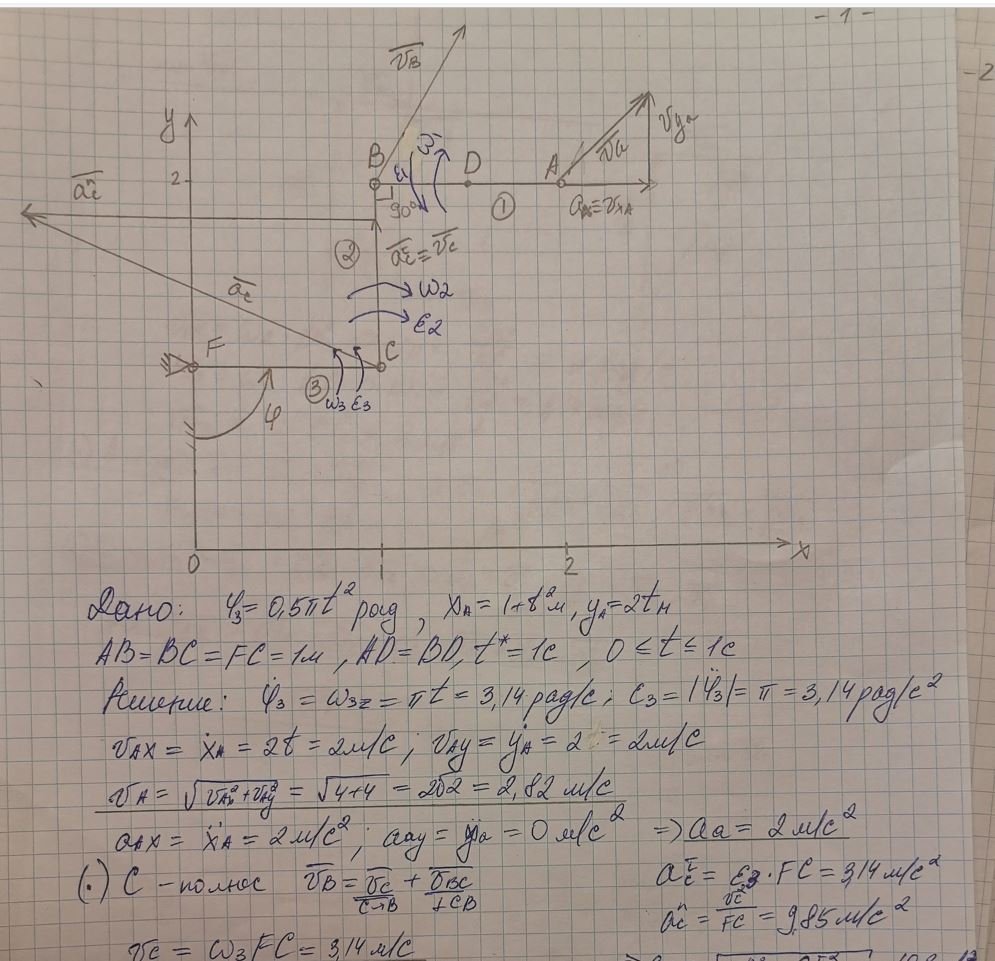 - 1 -
-2
V̅B
y
Vya
B
D
A
V̅a
2
ε1
ω1
a̅ⁿc
90°
①
aₐₓ=VxA
②
a̅ᵗc = V̅c
a̅c
ω2
ε2
F
C
③
ω3 ε3
φ
0
1
2
x
Дано: φ₃ = 0,5πt² рад, xA = 1+t² м, yA = 2t м
AB = BC = FC = 1м, AD = BD, t* = 1с, 0 ≤ t ≤ 1с
Решение: φ̇₃ = ω₃z = πt = 3,14 рад/с; ε₃ = |φ̈₃| = π = 3,14 рад/с²
VAX = ẋA = 2t = 2м/с; VAy = ẏA = 2 = 2м/с
VA = √(VAx² + VAy²) = √(4+4) = 2√2 = 2,82 м/с
aAX = ẍA = 2 м/с²; aAy = ÿa = 0 м/с² => aa = 2 м/с²
(·) C - полюс V̅B = V̅c + V̅BC
C→B ⊥CB
aᵗc = ε₃ · FC = 3,14 м/с²
aⁿc = Vc²/FC = 9,85 м/с²
Vc = ω₃FC = 3,14 м/с